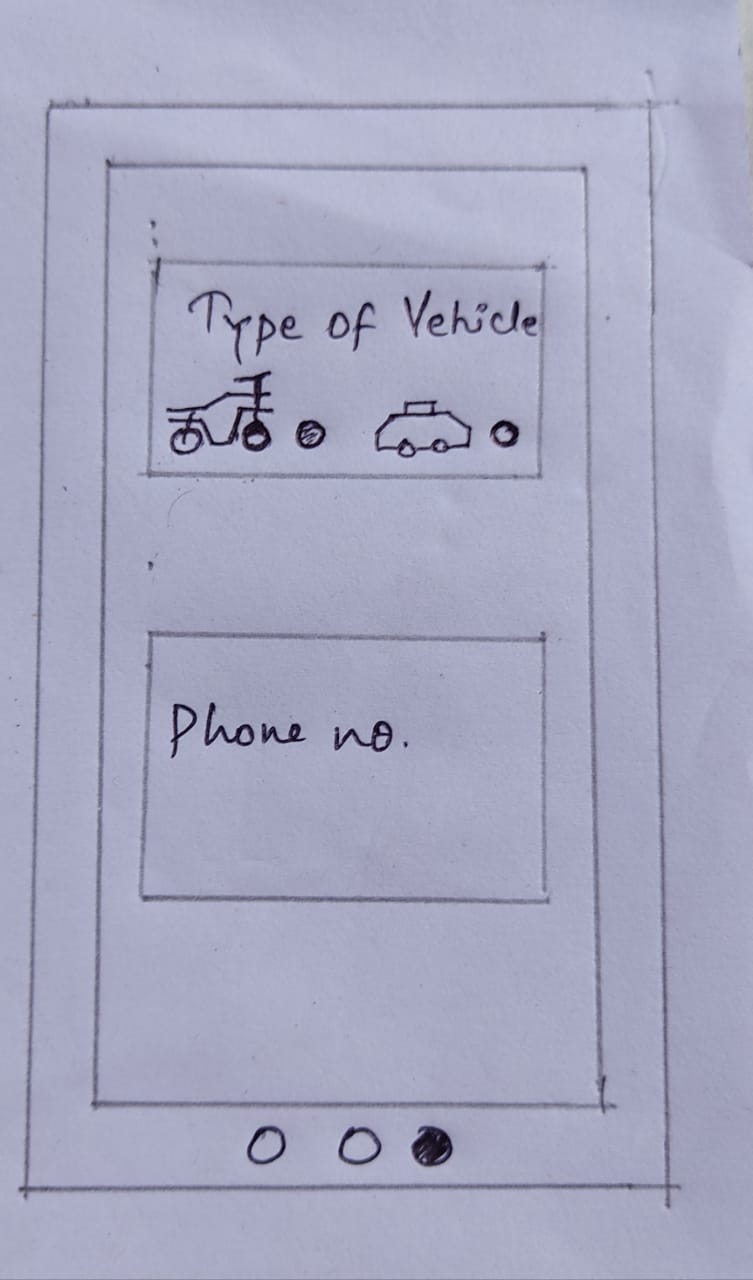 Type of Vehicle
Phone no.